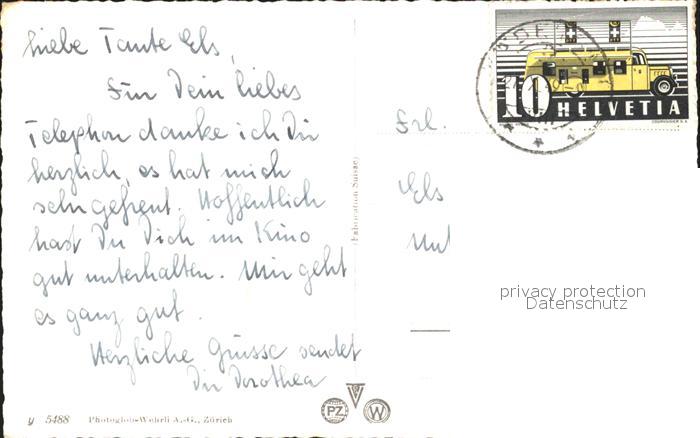 Liebe Tante Els,
Für Dein liebes
Telephon danke ich Dir
herzlich, es hat mich
sehr gefreut. Hoffentlich
hast Du Dich im Kino
gut unterhalten. Mir geht
es ganz gut.
Herzliche Grüsse sendet
Dir Dorothea
y 5488 Photoglob-Wehrli A.-G., Zürich
(Fabrication Suisse)
PZ
W
10 HELVETIA
COURVOISIER S.A.
Frl.
Els
privacy protection
Datenschutz